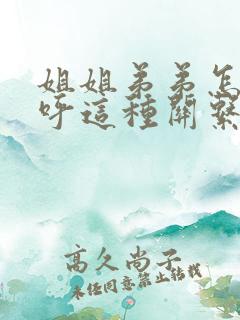 姐姐弟弟怎
呼這種關繫
高久尚子
未經同意禁止轉載